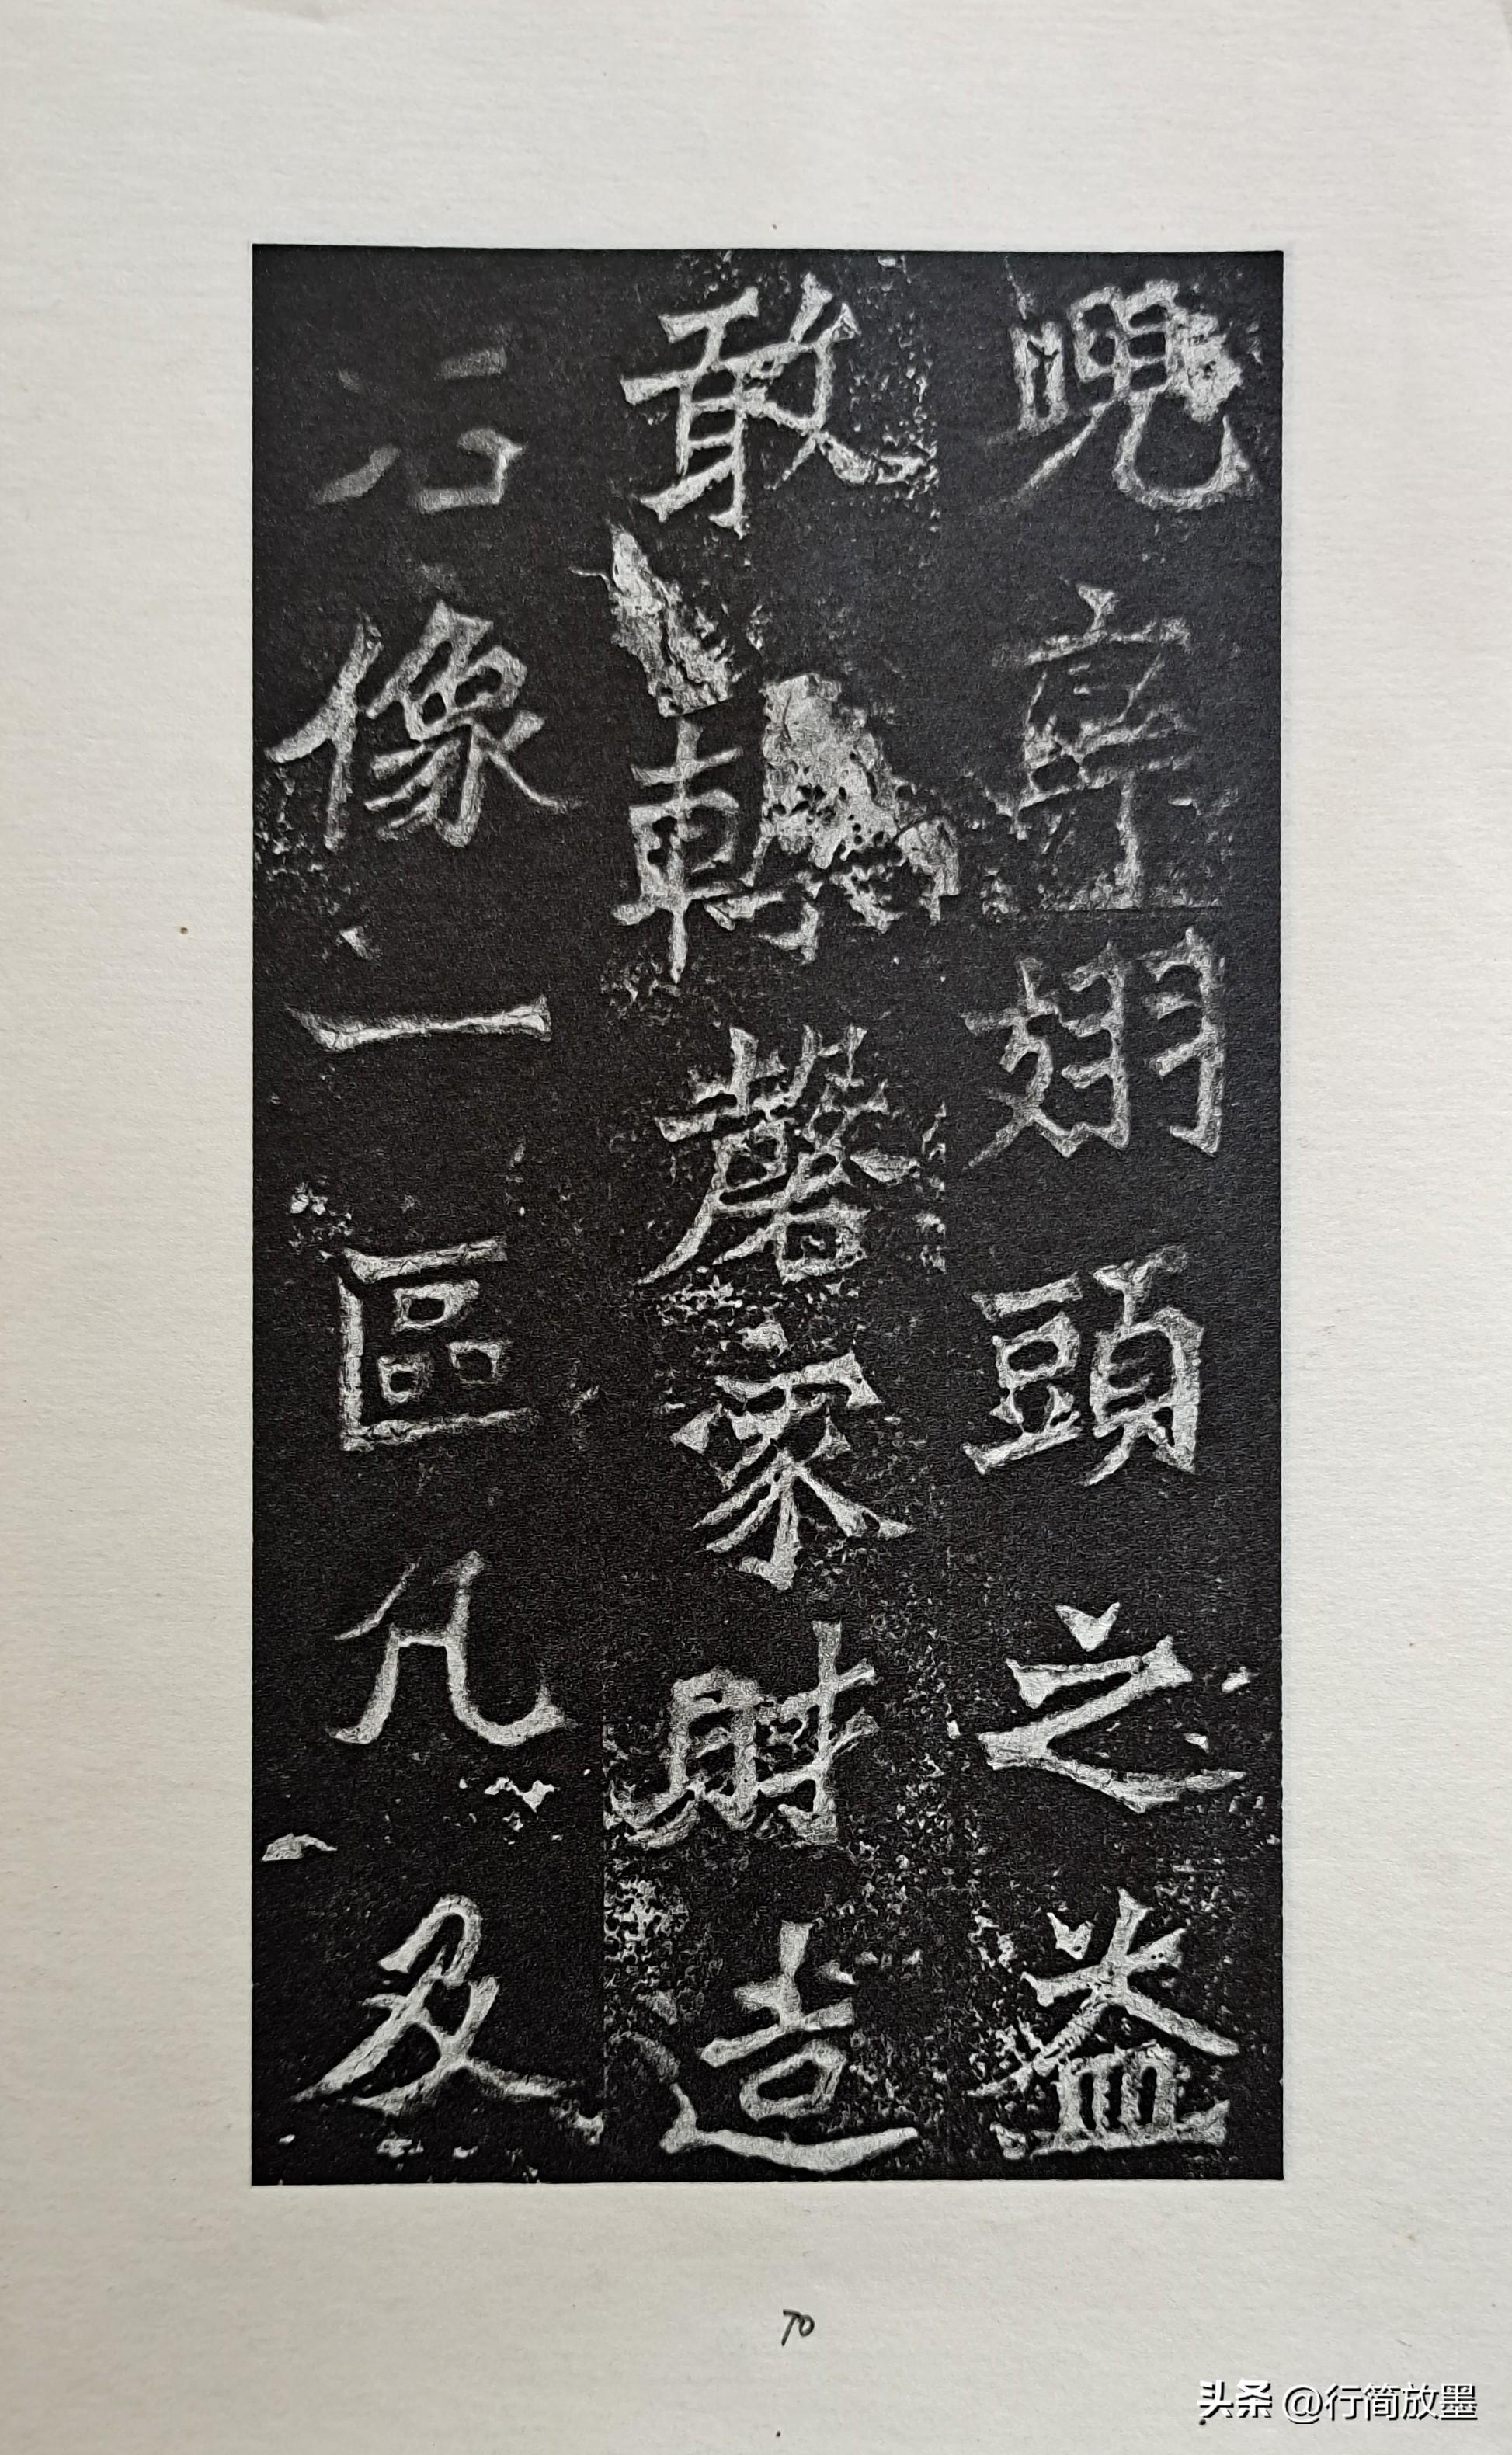 兜率翅頭之益
敢輒磬家財造
石像一區凡及
70
头条 @行简放墨